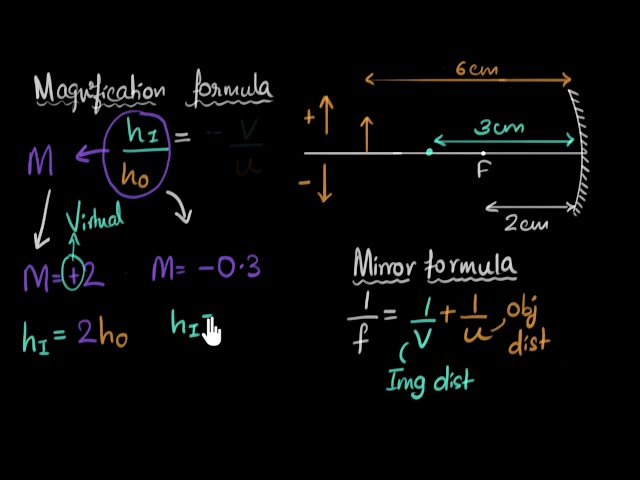 Magnification formula
M ← hI/hO = - v/u
Virtual
M = +2
M = -0.3
hI = 2hO
hI =
6cm
+
3cm
F
-
2cm
Mirror formula
1/f = 1/v + 1/u
obj dist
Img dist